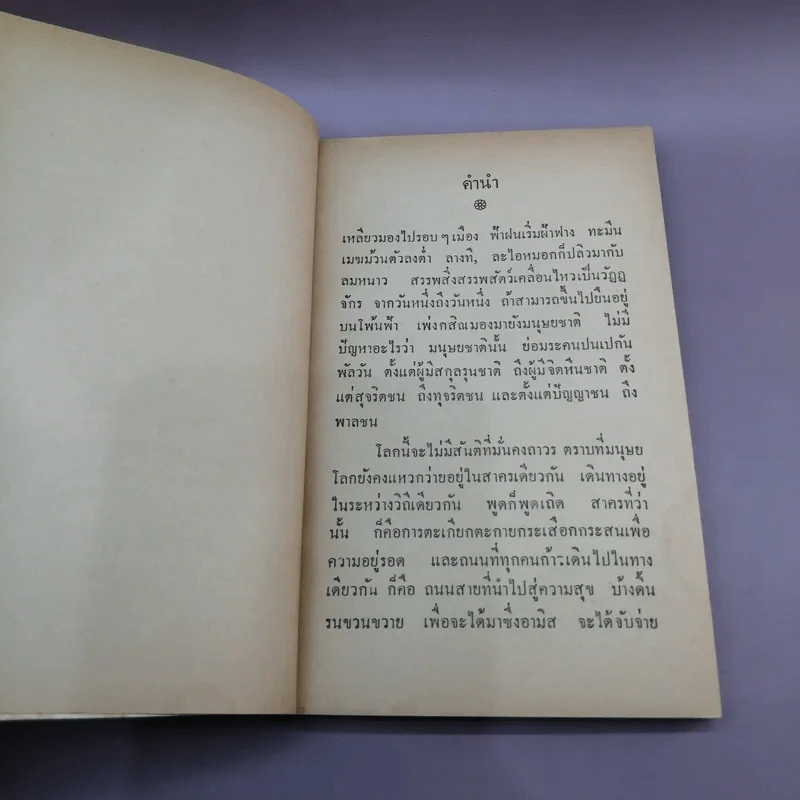 คำนำ
เหลียวมองไปรอบ ๆ เมือง ฟ้าฝนเริ่มฝ้าฟาง ทะมึน
เมฆม้วนตัวลงต่ำ ลางที, ละไอหมอกก็ปลิวมากับ
ลมหนาว สรรพสิ่งสรรพสัตว์เคลื่อนไหวเป็นวัฏฏ
จักร จากวันหนึ่งถึงวันหนึ่ง ถ้าสามารถขึ้นไปยืนอยู่
บนโพ้นฟ้า เพ่งกสิณมองมายังมนุษยชาติ ไม่มี
ปัญหาอะไรว่า มนุษยชาตินั้น ย่อมระคนปนเปกัน
พัลวัน ตั้งแต่ผู้มีสกุลรุนชาติ ถึงผู้มีจิตหีนชาติ ตั้ง
แต่สุจริตชน ถึงทุจริตชน และตั้งแต่ปัญญาชน ถึง
พาลชน
โลกนี้จะไม่มีสันติที่มั่นคงถาวร ตราบที่มนุษย
โลกยังคงแหวกว่ายอยู่ในสาครเดียวกัน เดินทางอยู่
ในระหว่างวิถีเดียวกัน พูดก็พูดเถิด สาครที่ว่า
นั้น ก็คือการตะเกียกตะกายกระเสือกกระสนเพื่อ
ความอยู่รอด และถนนที่ทุกคนก้าวเดินไปในทาง
เดียวกัน ก็คือ ถนนสายที่นำไปสู่ความสุข บ้างดิ้น
รนขวนขวาย เพื่อจะได้มาซึ่งอามิส จะได้จับจ่าย